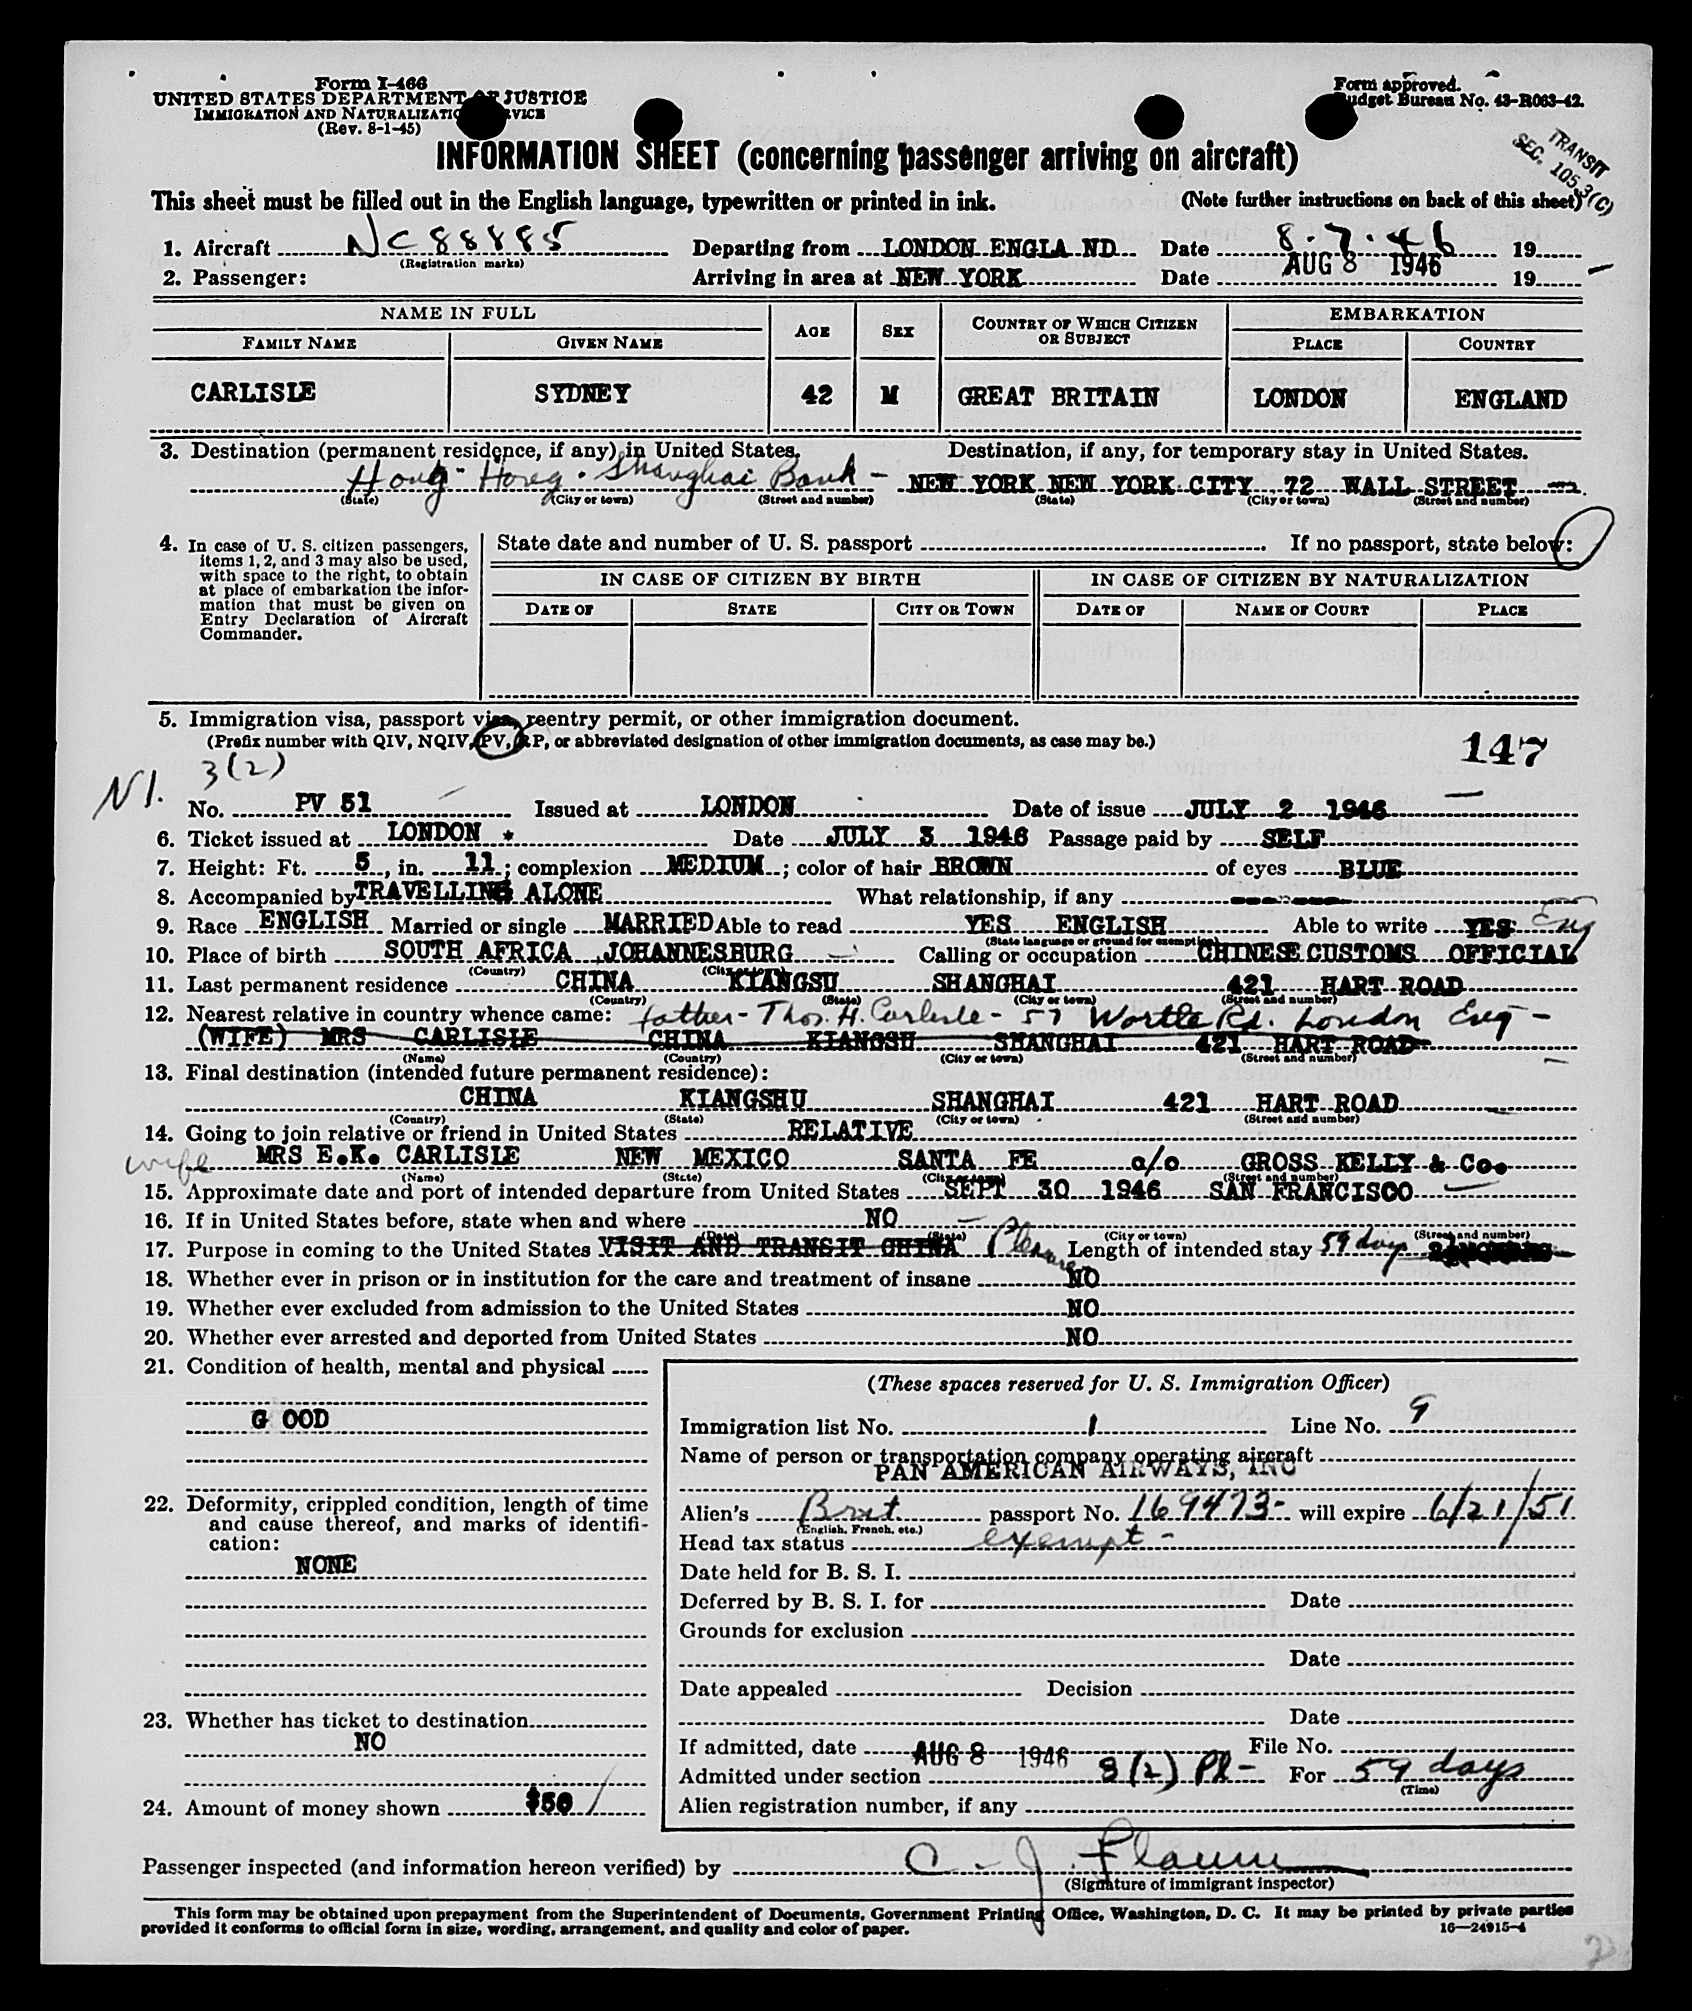 Form I-466
UNITED STATES DEPARTMENT OF JUSTICE
IMMIGRATION AND NATURALIZATION SERVICE
(Rev. 8-1-45)
Form approved.
Budget Bureau No. 43-R063-42.
TRANSIT
SEC. 105.3(C)
INFORMATION SHEET (concerning passenger arriving on aircraft)
This sheet must be filled out in the English language, typewritten or printed in ink. (Note further instructions on back of this sheet)
1. Aircraft NC 88885 Departing from LONDON ENGLA ND Date 8.7.46 19
(Registration marks)
2. Passenger: Arriving in area at NEW YORK Date AUG 8 1946 19
NAME IN FULL AGE SEX COUNTRY OF WHICH CITIZEN OR SUBJECT EMBARKATION
FAMILY NAME GIVEN NAME PLACE COUNTRY
CARLISLE SYDNEY 42 M GREAT BRITAIN LONDON ENGLAND
3. Destination (permanent residence, if any) in United States. Destination, if any, for temporary stay in United States.
Hong-Hong-Shanghai Bank - NEW YORK NEW YORK CITY 72 WALL STREET
(State) (City or town) (Street and number) (State) (City or town) (Street and number)
4. In case of U. S. citizen passengers, items 1, 2, and 3 may also be used, with space to the right, to obtain at place of embarkation the information that must be given on Entry Declaration of Aircraft Commander.
State date and number of U. S. passport If no passport, state below:
IN CASE OF CITIZEN BY BIRTH IN CASE OF CITIZEN BY NATURALIZATION
DATE OF STATE CITY OR TOWN DATE OF NAME OF COURT PLACE
5. Immigration visa, passport visa, reentry permit, or other immigration document.
(Prefix number with QIV, NQIV, PV, RP, or abbreviated designation of other immigration documents, as case may be.)
147
3(2)
N I.
No. PV 51 Issued at LONDON Date of issue JULY 2 1946
6. Ticket issued at LONDON * Date JULY 3 1946 Passage paid by SELF
7. Height: Ft. 5, in. 11; complexion MEDIUM; color of hair BROWN of eyes BLUE
8. Accompanied by TRAVELLING ALONE What relationship, if any
9. Race ENGLISH Married or single MARRIED Able to read YES ENGLISH Able to write YES Eng
(State language or ground for exemption)
10. Place of birth SOUTH AFRICA JOHANNESBURG Calling or occupation CHINESE CUSTOMS OFFICIAL
(Country) (City or town)
11. Last permanent residence CHINA KIANGSU SHANGHAI 421 HART ROAD
(Country) (State) (City or town) (Street and number)
12. Nearest relative in country whence came: father - Thos. H. Carlisle - 57 Wortle Rd. London Eng -
(WIFE) MRS CARLISLE CHINA KIANGSU SHANGHAI 421 HART ROAD
(Name) (Country) (City or town) (Street and number)
13. Final destination (intended future permanent residence):
CHINA KIANGSHU SHANGHAI 421 HART ROAD
(Country) (State) (City or town) (Street and number)
14. Going to join relative or friend in United States RELATIVE
wife MRS E.K. CARLISLE NEW MEXICO SANTA FE a/o GROSS KELLY & Co.
(Name) (State) (City or town) (Street and number)
15. Approximate date and port of intended departure from United States SEPT 30 1946 SAN FRANCISCO
16. If in United States before, state when and where NO
(Date) (State) (City or town) (Street and number)
17. Purpose in coming to the United States VISIT AND TRANSIT CHINA Pleasure Length of intended stay 59 days
18. Whether ever in prison or in institution for the care and treatment of insane NO
19. Whether ever excluded from admission to the United States NO
20. Whether ever arrested and deported from United States NO
21. Condition of health, mental and physical
G OOD
22. Deformity, crippled condition, length of time and cause thereof, and marks of identification:
NONE
23. Whether has ticket to destination
NO
24. Amount of money shown $50
(These spaces reserved for U. S. Immigration Officer)
Immigration list No. 1 Line No. 9
Name of person or transportation company operating aircraft
PAN AMERICAN AIRWAYS, INC
Alien's Brit passport No. 169473 - will expire 6/21/51
(English, French, etc.)
Head tax status exempt -
Date held for B. S. I.
Deferred by B. S. I. for Date
Grounds for exclusion
Date
Date appealed Decision
Date
If admitted, date AUG 8 1946 File No.
Admitted under section 3(2) Pl - For 59 days
(Time)
Alien registration number, if any
Passenger inspected (and information hereon verified) by C. J.
(Signature of immigrant inspector)
This form may be obtained upon prepayment from the Superintendent of Documents, Government Printing Office, Washington, D. C. It may be printed by private parties
provided it conforms to official form in size, wording, arrangement, and quality and color of paper. 16—24915-4